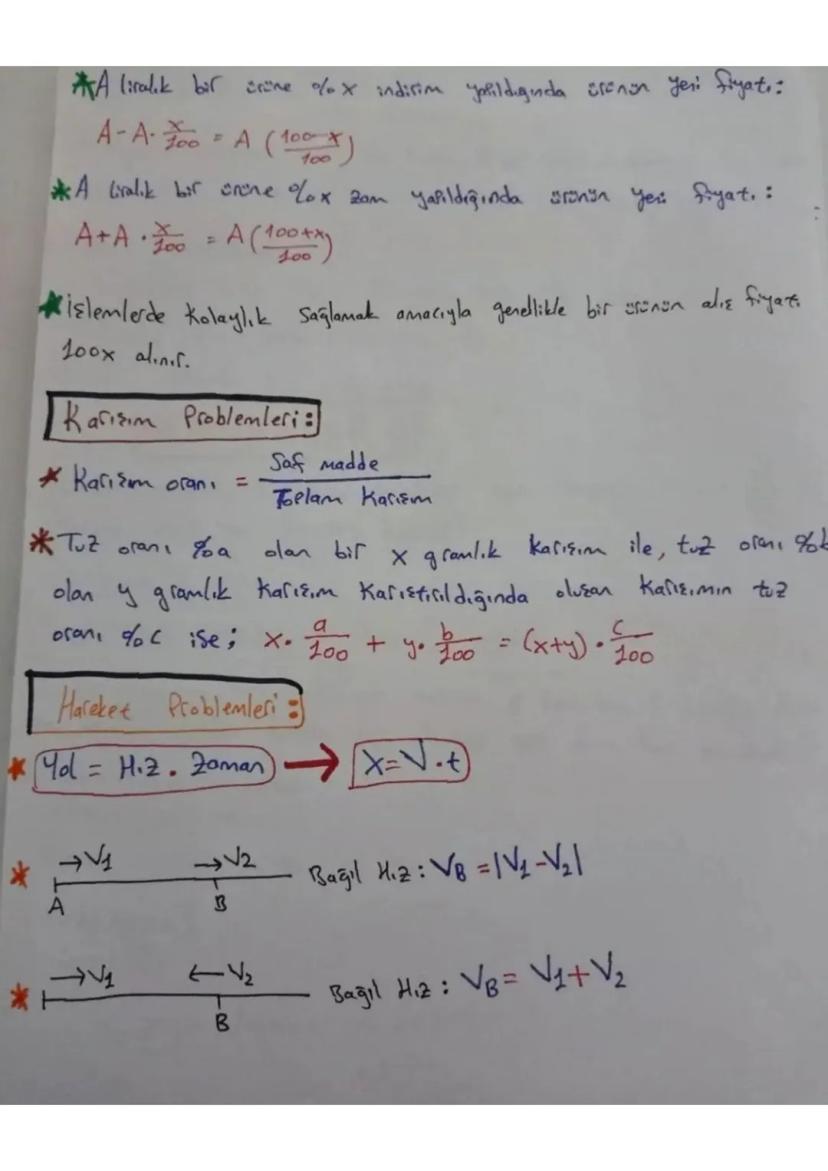 *A liralık bir ürüne %x indirim yapıldığında ürünün yeni fiyatı:
A-A.x/100 = A (100-x/100)
*A liralık bir ürüne %x zam yapıldığında ürünün yeni fiyatı:
A+A.x/100 = A(100+x/100)
*İşlemlerde kolaylık sağlamak amacıyla genellikle bir ürünün alış fiyatı
100x alınır.
Karışım Problemleri:
* Karışım oranı = Saf madde / Toplam Karışım
*Tuz oranı %a olan bir x gramlık karışım ile, tuz oranı %b
olan y gramlık karışım karıştırıldığında oluşan karışımın tuz
oranı %c ise; x.a/100 + y.b/100 = (x+y).c/100
Hareket Problemleri:
* Yol = Hız . Zaman → X=V.t
* →V1 →V2 Bağıl Hız: VB =|V1-V2|
A B
* →V1 ←V2 Bağıl Hız: VB= V1+V2
B